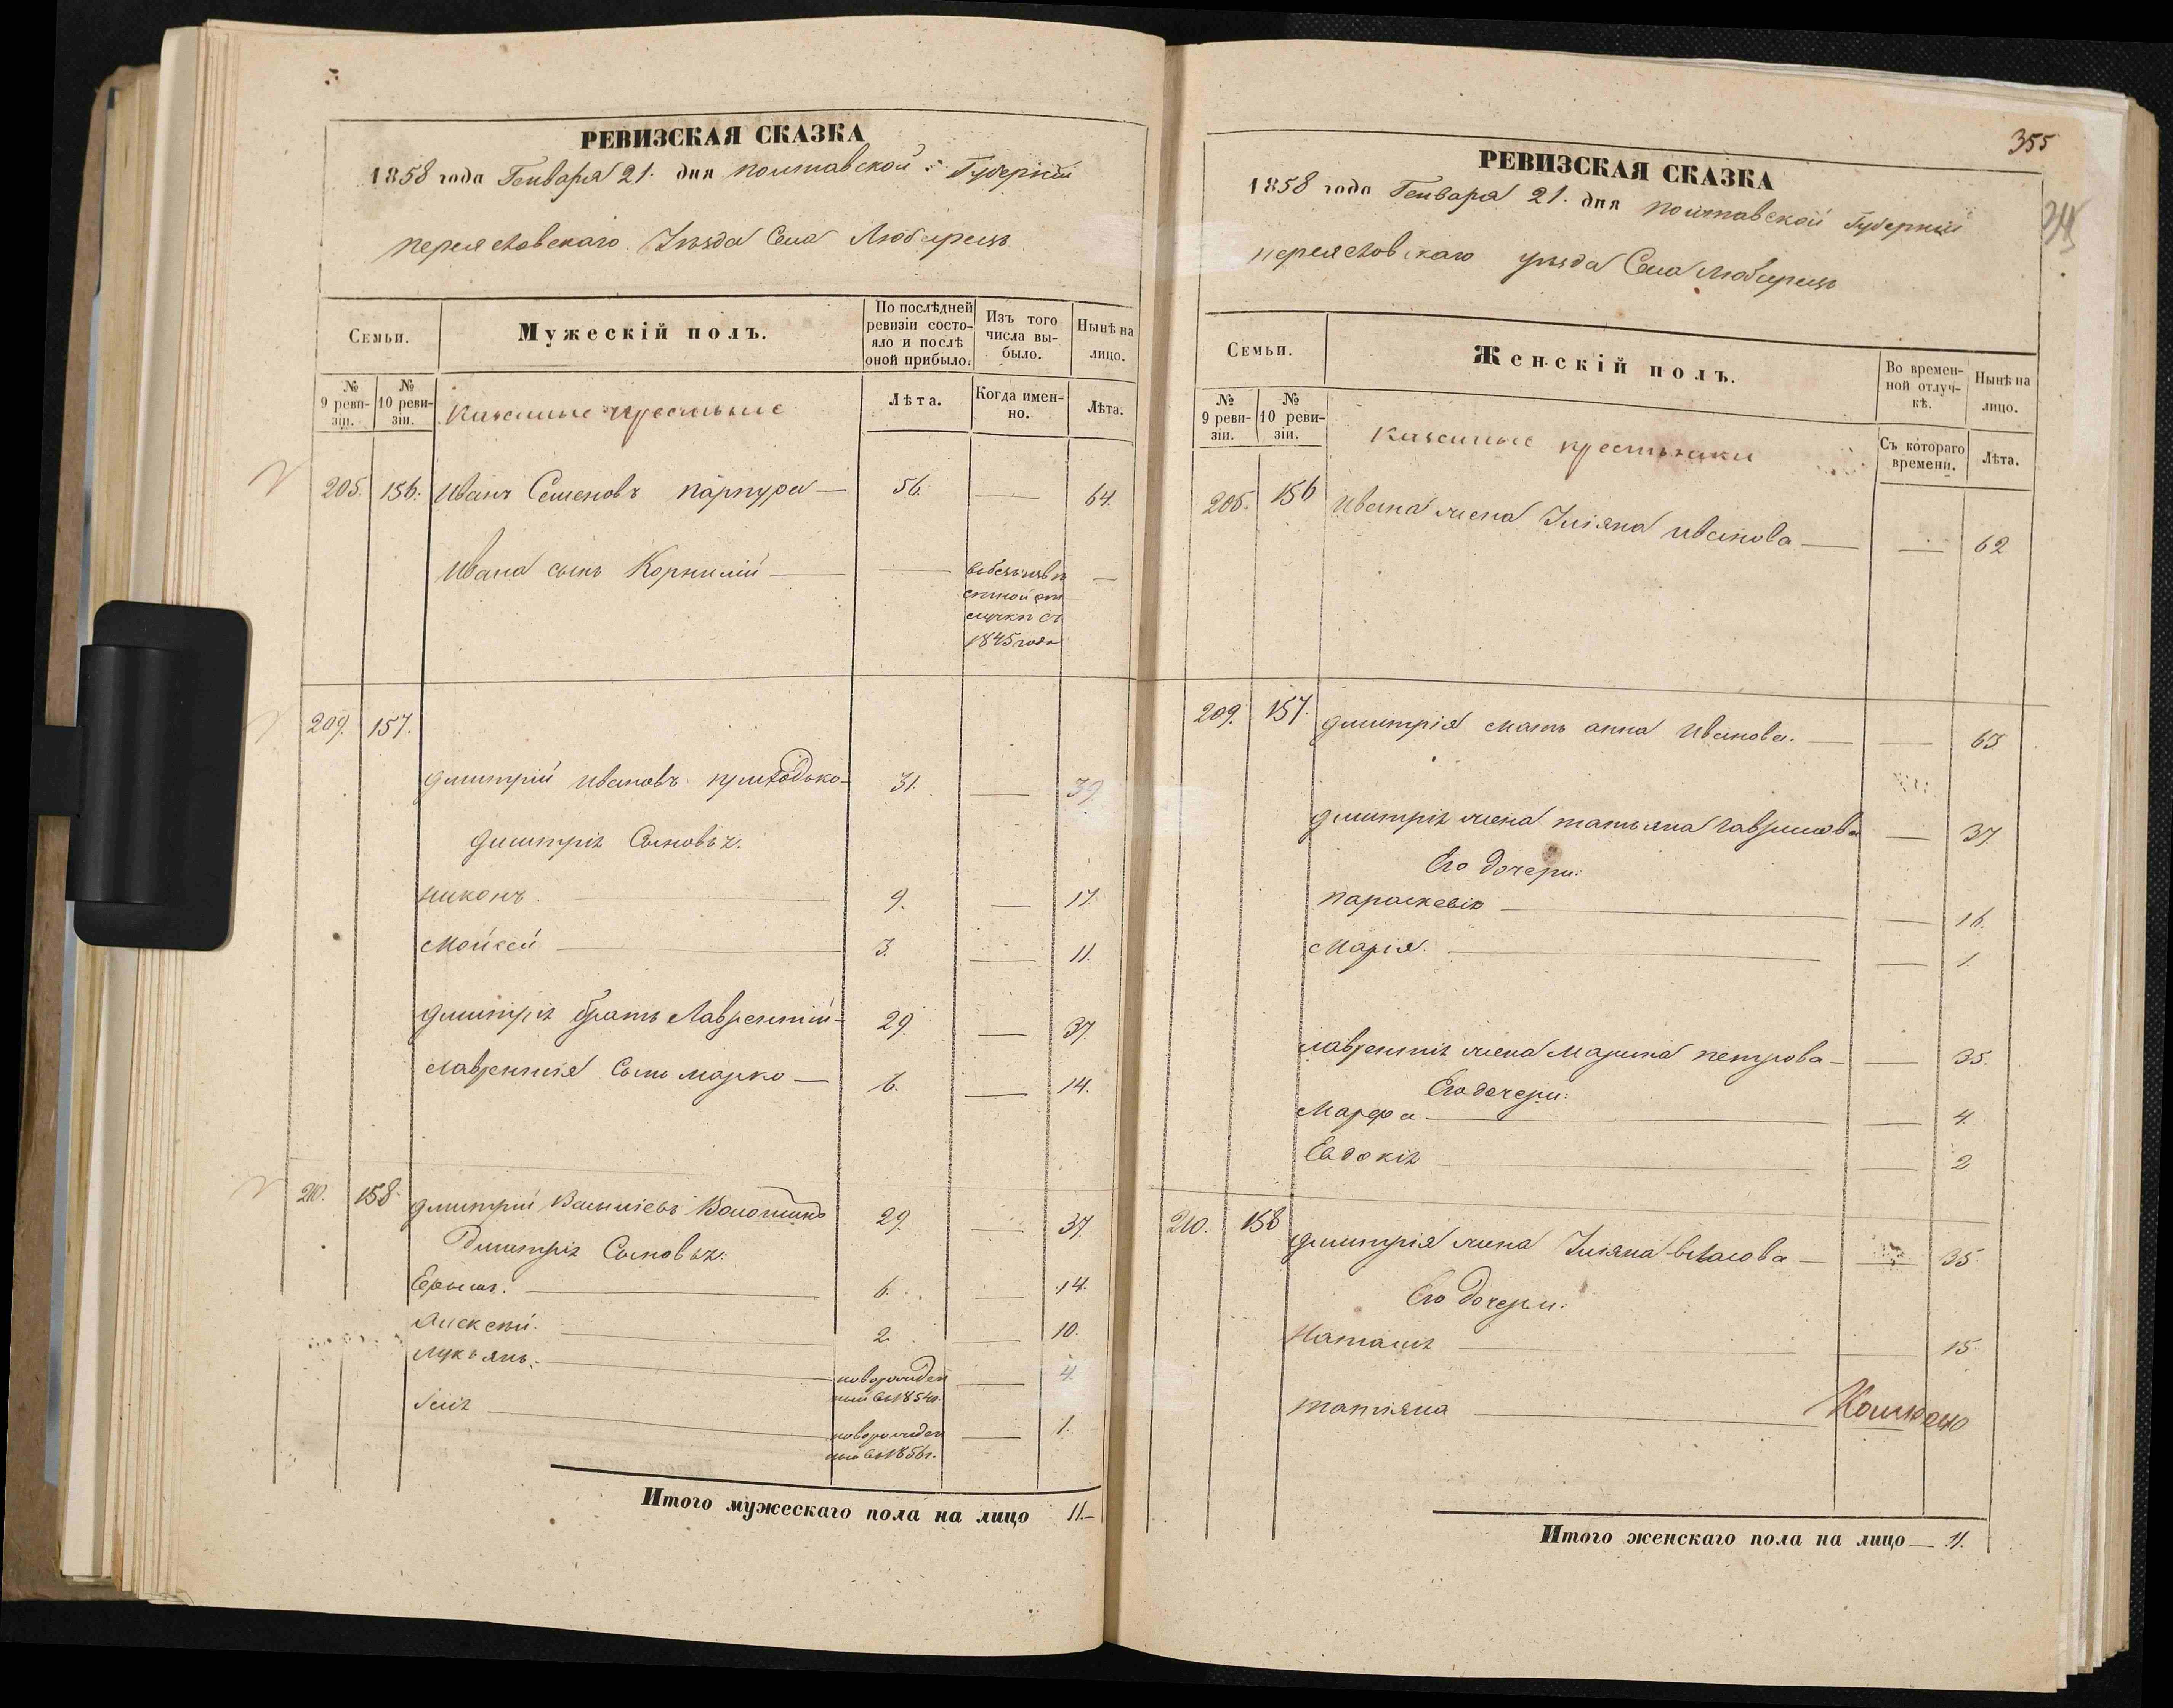 РЕВИЗСКАЯ СКАЗКА
1858 года Генваря 21. дня полтавской Губерніи
переясловскаго Уѣзда Села Любарецъ
Семьи.
Мужескій полъ.
По послѣдней ревизіи состояло и послѣ оной прибыло.
Изъ того числа выбыло.
Нынѣ на лицо.
№ 9 ревизіи.
№ 10 ревизіи.
Казенные крестьяне
Лѣта.
Когда именно.
Лѣта.
205. 156. Иванъ Семеновъ парпура — 56. — 64.
Ивана сынъ Корнилій — — въ безъизвѣстной отлучки съ 1845 года —
209. 157.
димитрій Ивановъ приходько — 31. — 39.
димитрія Сыновья.
никонъ. — 9. — 17.
Мойсей — 3. — 11.
димитрія братъ Лаврентій — 29. — 37.
Лаврентія Сынъ марко — 6. — 14.
210. 158. димитрій Васильевъ 29. — 37.
Димитрія Сыновья:
6. — 14.
Алексѣй. — 2. — 10.
Лукьянъ. — новорожденный въ 1854г. — 4
Илія — новорожденный въ 1856г. — 1.
Итого мужескаго пола на лицо 11.—
355
РЕВИЗСКАЯ СКАЗКА
1858 года Генваря 21. дня полтавской Губерніи
переясловскаго уѣзда Села Любарецъ
Семьи.
Женскій полъ.
Во временной отлучкѣ.
Нынѣ на лицо.
№ 9 ревизіи.
№ 10 ревизіи.
казенные крестьянки
Съ котораго времени.
Лѣта.
205. 156 Ивана жена Уліяна иванова — — 62
209. 157. димитрія мать анна Иванова. — — 65
димитрія жена татьяна Гаврилова — 37
Его дочери:
параскевія — — 16.
Марія. — — 1.
лаврентія жена Марина петрова — — 35.
Его дочери:
Марфа — — 4.
Евдокія — — 2
210. 158 димитрія жена Уліяна власова — — 35
Его дочери:
Наталія — — 15
татіяна —
Итого женскаго пола на лицо — 11.